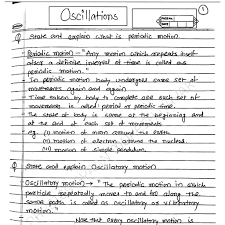 Oscillations
PAGE No.
DATE
1
Q State and explain what is periodic motion.
Periodic motion - "Any motion which repeats itself
after a definite interval of time is called as
periodic motion."
In periodic motion body undergoes same set of
movements again and again
Time taken by body to complete one such set of
movements is called period or periodic time.
The state of body is same at the beginning and
at the end of each set of movements.
eg. (i) motion of moon around the earth
(ii) motion of electron around nucleus
(iii) motion of simple pendulum.
Q State and explain Oscillatory motion
Oscillatory motion → "The periodic motion in which
particle repeatedly moves to and fro along the
same path is called as oscillatory or vibratory
motion."
Note that every oscillatory motion is